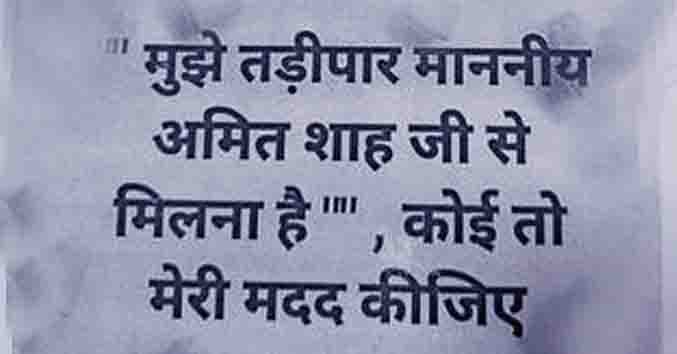 "" मुझे तड़ीपार माननीय
अमित शाह जी से
मिलना है """ , कोई तो
मेरी मदद कीजिए